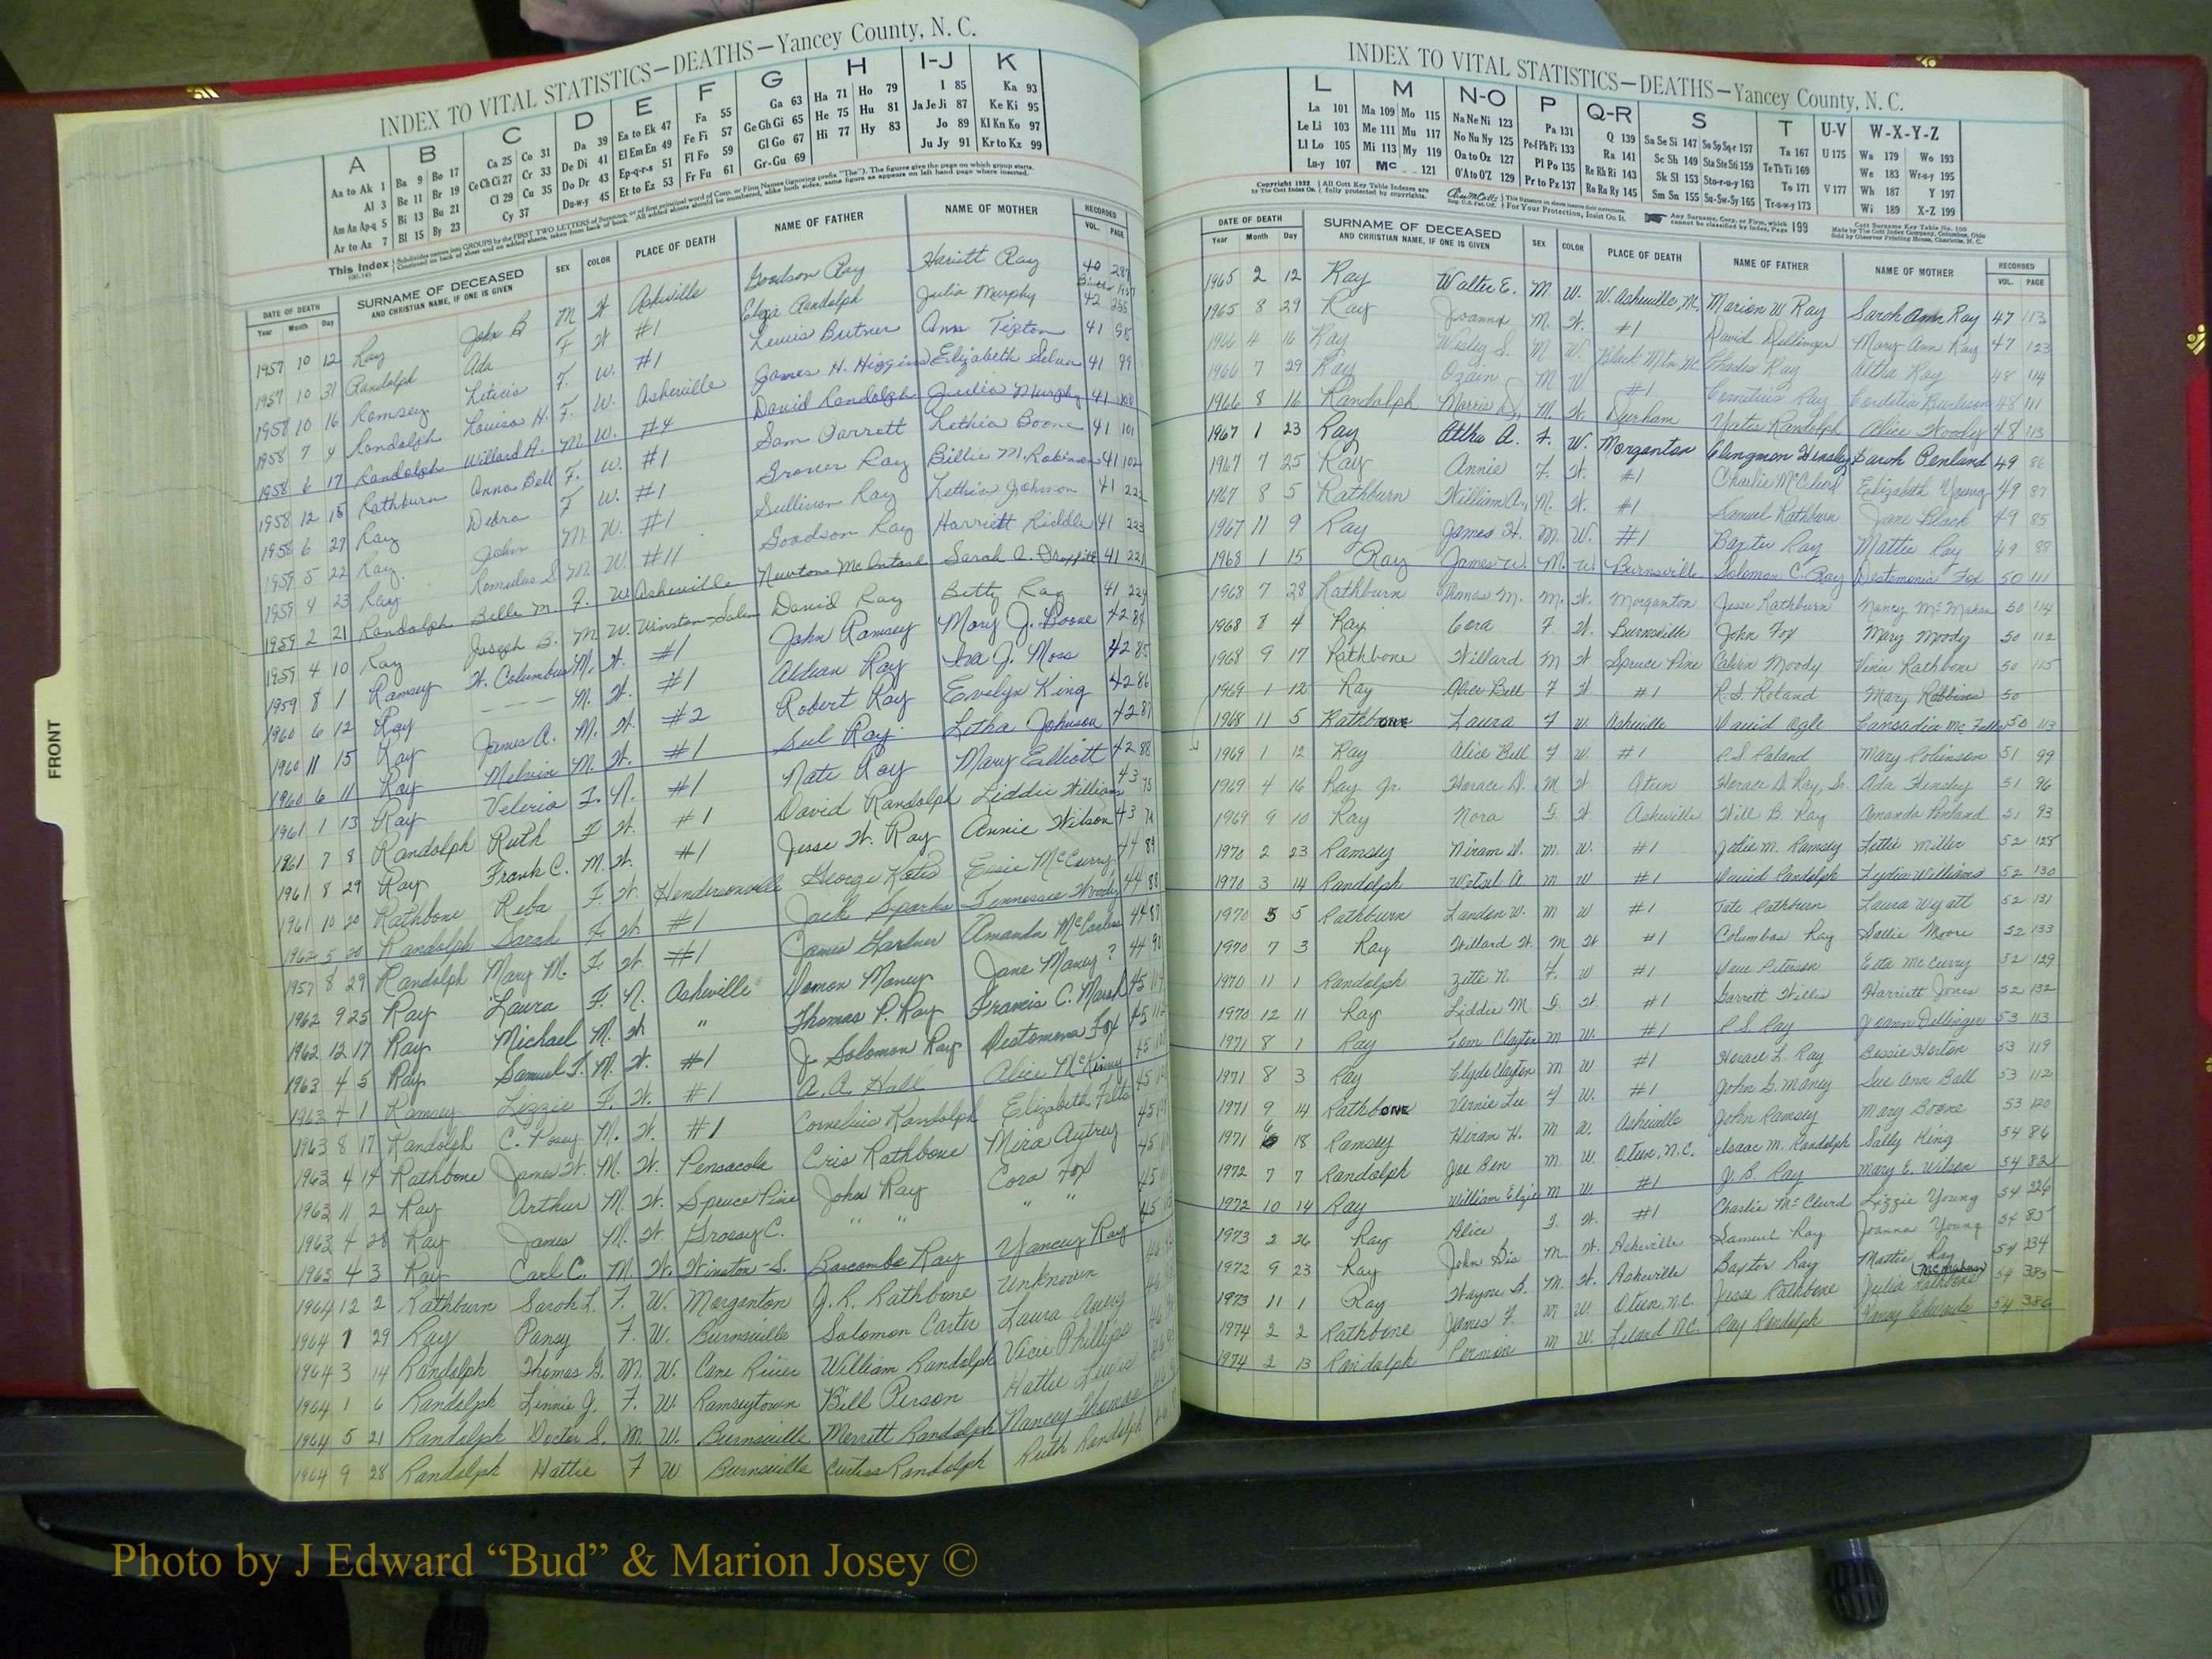 FRONT
INDEX TO VITAL STATISTICS—DEATHS—Yancey County, N. C.
A B C D E F G H I-J K
Aa to Ak 1 Ba 9 Bo 17 Ca 25 Co 31 Da 39 Ea to Ek 47 Fa 55 Ga 63 Ha 71 Ho 79 I 85 Ka 93
Al 3 Be 11 Br 19 Ce Ch Ci 27 Cr 33 De Di 41 El Em En 49 Fe Fi 57 Ge Gh Gi 65 He 75 Hu 81 Ja Je Ji 87 Ke Ki 95
Am An Ap-q 5 Bi 13 Bu 21 Cl 29 Cu 35 Do Dr 43 Ep-q-r-s 51 Fl Fo 59 Gl Go 67 Hi 77 Hy 83 Jo 89 Kl Kn Ko 97
Ar to Az 7 Bl 15 By 23 Cy 37 Du-w-y 45 Et to Ez 53 Fr Fu 61 Gr-Gu 69 Ju Jy 91 Kr to Kz 99
DATE OF DEATH SURNAME OF DECEASED AND CHRISTIAN NAME, IF ONE IS GIVEN SEX COLOR PLACE OF DEATH NAME OF FATHER NAME OF MOTHER RECORDED
Year Month Day VOL. PAGE
1957 10 12 Ray John B M W Asheville Goodson Ray Hariett Ray 40 287
1957 10 31 Randolph Ada F W #1 Eliza Randolph Julia Murphy 42 255
1958 10 16 Ramsey Leticia F. W. #1 Lewis Butner Ann Tipton 41 98
1958 7 4 Randolph Louisa H. F. W. Asheville James H. Higgins Elizabeth 41 99
1958 6 17 Randolph Willard A. M W. #4 David Randolph Julia Murphy 41 100
1958 12 18 Rathburn Anna Bell F. W. #1 Sam Parrott Lethia Boone 41 101
1958 6 27 Ray Debra F W. #1 Grover Ray Billie M. Robinson 41 102
1959 5 22 Ray John M W. #1 Sullivan Ray Lethia Johnson 41 222
1959 4 23 Ray Romulus S. M. W. #11 Goodson Ray Harriett Riddle 41 223
1959 2 21 Randolph Belle M. F. W. Asheville Newton McIntosh Sarah A. 41 221
1959 4 10 Ray Joseph B. M. W. Winston-Salem David Ray Betty Ray 41 224
1959 8 1 Ramsey W. Columbus M. W. #1 John Ramsey Mary J. Boone 42 84
1960 6 12 Ray ---- M. W. #1 Aldean Ray Iva J. Moss 42 85
1960 11 15 Ray James A. M. W. #2 Robert Ray Evelyn King 42 86
1960 6 11 Ray Melvin M. W. #1 Sul Ray Letha Johnson 42 87
1961 1 13 Ray Veleria F. N. #1 Nate Ray Mary Elliott 42 88
1961 7 8 Randolph Ruth F W. #1 David Randolph Liddie William 43 75
1961 8 29 Ray Frank C. M. W. #1 Jesse W. Ray Annie Wilson 43
1961 10 20 Rathbone Reba F. W. Hendersonville George Essie McCurry 44 89
1962 5 20 Randolph Sarah F. W. #1 Jack Sparks Tennessee Woody 44 88
1957 8 29 Randolph Mary M. F. W. #1 James Gardner Amanda 44 87
1962 9 25 Ray Laura F. N. Asheville Damon Maney Jane Maney ? 44 90
1962 12 17 Ray Michael M. W. " Thomas P. Ray Francis C. Marsh 45
1963 4 5 Ray Samuel J. M. W. #1 J. Solomon Ray Destomona Fox 45
1963 4 1 Ramsey Lizzie F. W. #1 A. A. Hall Alice McKinny 45
1963 8 17 Randolph C. Posey M. W. #1 Cornelius Randolph Elizabeth 45
1963 4 14 Rathbone James W. M. W. Pensacola Cris Rathbone Mira Autrey 45
1963 11 2 Ray Arthur M. W. Spruce Pine John Ray Cora Fox 45
1963 4 28 Ray James M. W. Grassy C. " " " " 45
1963 4 3 Ray Carl C. M. W. Winston-S. Bascombe Ray Yancey Ray
1964 12 2 Rathburn Sarah L. F. W. Morganton J. R. Rathbone Unknown
1964 1 29 Ray Pansy F. W. Burnsville Solomon Carter Laura
1964 3 14 Randolph Thomas G. M. W. Cane River William Randolph Vicie Phillips
1964 1 6 Randolph Linnie J. F. W. Ramseytown Bill Person Hattie Lewis
1964 5 21 Randolph Doctor S. M. W. Burnsville Merritt Randolph Nancy Thomas
1964 9 28 Randolph Hattie F W Burnsville Curtiss Randolph Ruth Randolph
INDEX TO VITAL STATISTICS—DEATHS—Yancey County, N. C.
L M N-O P Q-R S T U-V W-X-Y-Z
La 101 Ma 109 Mo 115 Na Ne Ni 123 Pa 131 Q 139 Sa Se Si 147 So Sp Sq-r 157 Ta 167 U 175 Wa 179 Wo 193
Le Li 103 Me 111 Mu 117 No Nu Ny 125 Pe-f Ph Pi 133 Ra 141 Sc Sh 149 Sta Ste Sti 159 Te Th Ti 169 We 183 Wr-u-y 195
Ll Lo 105 Mi 113 My 119 Oa to Oz 127 Pl Po 135 Re Rh Ri 143 Sk Sl 153 Sto-r-u-y 163 To 171 V 177 Wh 187 Y 197
Lu-y 107 Mc 121 O'A to O'Z 129 Pr to Pz 137 Ro Ru Ry 145 Sm Sn 155 Su-Sw-Sy 165 Tr-u-w-y 173 Wi 189 X-Z 199
DATE OF DEATH SURNAME OF DECEASED AND CHRISTIAN NAME, IF ONE IS GIVEN SEX COLOR PLACE OF DEATH NAME OF FATHER NAME OF MOTHER RECORDED
Year Month Day VOL. PAGE
1965 2 12 Ray Walter E. M. W. W. Asheville, N. Marion W Ray Sarah Ann Ray 47 113
1965 8 29 Ray Joanna M. W. #1 David Dellinger Mary Ann Ray 47 123
1966 4 16 Ray Wesley S. M W. Black Mtn. N.C. Charles Ray Altha Ray 48 114
1966 7 29 Ray Ozain M W #1 Cornelius Ray Cordelia Burleson 48 111
1966 8 16 Randolph Morris D. M. W. Durham Yates Randolph Alice Woody 48 113
1967 1 23 Ray Altha A. F. W. Morganton Clingmon Hensley Sarah Penland 49 86
1967 7 25 Ray Annie F. W. #1 Charlie McClurd Elizabeth Young 49 87
1967 8 5 Rathburn William A. M. W. #1 Samuel Rathburn Jane Black 49 85
1967 11 9 Ray James H. M. W. #1 Baxter Ray Mattie Ray 49 88
1968 1 15 Ray James W. M. W. Burnsville Solomon C. Ray Destemonia Fox 50 111
1968 7 28 Rathburn Thomas M. M. W. Morganton Jesse Rathburn Nancy McMahan 50 114
1968 8 4 Ray Cora F. W. Burnsville John Fox Mary Moody 50 112
1968 9 17 Rathbone Willard M W Spruce Pine Calvin Moody Venie Rathbone 50 115
1969 1 12 Ray Alice Bell F W #1 R. S. Roland Mary Robbins 50
1968 11 5 Rathbone Laura F W Asheville David Ogle Cansadia 50 113
1969 1 12 Ray Alice Bell F W. #1 R. S. Roland Mary Robinson 51 99
1969 4 16 Ray Jr. Horace D. M W Oteen Horace D. Ray, Sr. Ada Hensley 51 96
1969 9 10 Ray Nora F. W. Asheville Will B. Ray Amanda Penland 51 93
1970 2 23 Ramsey Niram D. M. W. #1 Jolie M. Ramsey Lottie Miller 52 128
1970 3 14 Randolph Wetsel A M W #1 David Randolph Lydia Williams 52 130
1970 5 5 Rathburn Landon W. M W #1 Tate Rathburn Laura Wyatt 52 131
1970 7 3 Ray Willard W. M W #1 Columbus Ray Sallie Moore 52 133
1970 11 1 Randolph Zetta N. F. W #1 Dave Peterson Etta McCurry 52 129
1970 12 11 Ray Liddie M F. W. #1 Garrett Willis Harriett Jones 52 132
1971 8 1 Ray Tom Clayton M W. #1 R S Ray Joann Dellinger 53 113
1971 8 3 Ray Clyde Clayton M W #1 Horace L. Ray Bessie Horton 53 119
1971 9 14 Rathbone Vernie Lee F W. #1 John G. Maney Sue Ann Ball 53 112
1971 6 18 Ramsey Hiram H. M W. Asheville John Ramsey Mary Boone 53 120
1972 7 7 Randolph Joe Ben M. W. Oteen, N.C. Isaac M. Randolph Sally King 54 86
1972 10 14 Ray William Elzie M W. #1 J. B. Ray Mary E. Wilson 54 82
1973 2 26 Ray Alice F. W. #1 Charlie McClurd Lizzie Young 54 226
1972 9 23 Ray John Bis M. W. Asheville Samuel Ray Joanna Young 54 85
1973 11 1 Ray Wayne B. M. W. Asheville Baxter Ray Mattie Ray 54 234
1974 2 2 Rathbone James F. M W. Oteen, N.C. Jesse Rathbone Julia Rathbone (McMahan) 54 385
1974 2 13 Randolph Permon M W. Ledard N.C. Ray Randolph Nancy Edwards 54 386
Photo by J Edward “Bud” & Marion Josey ©